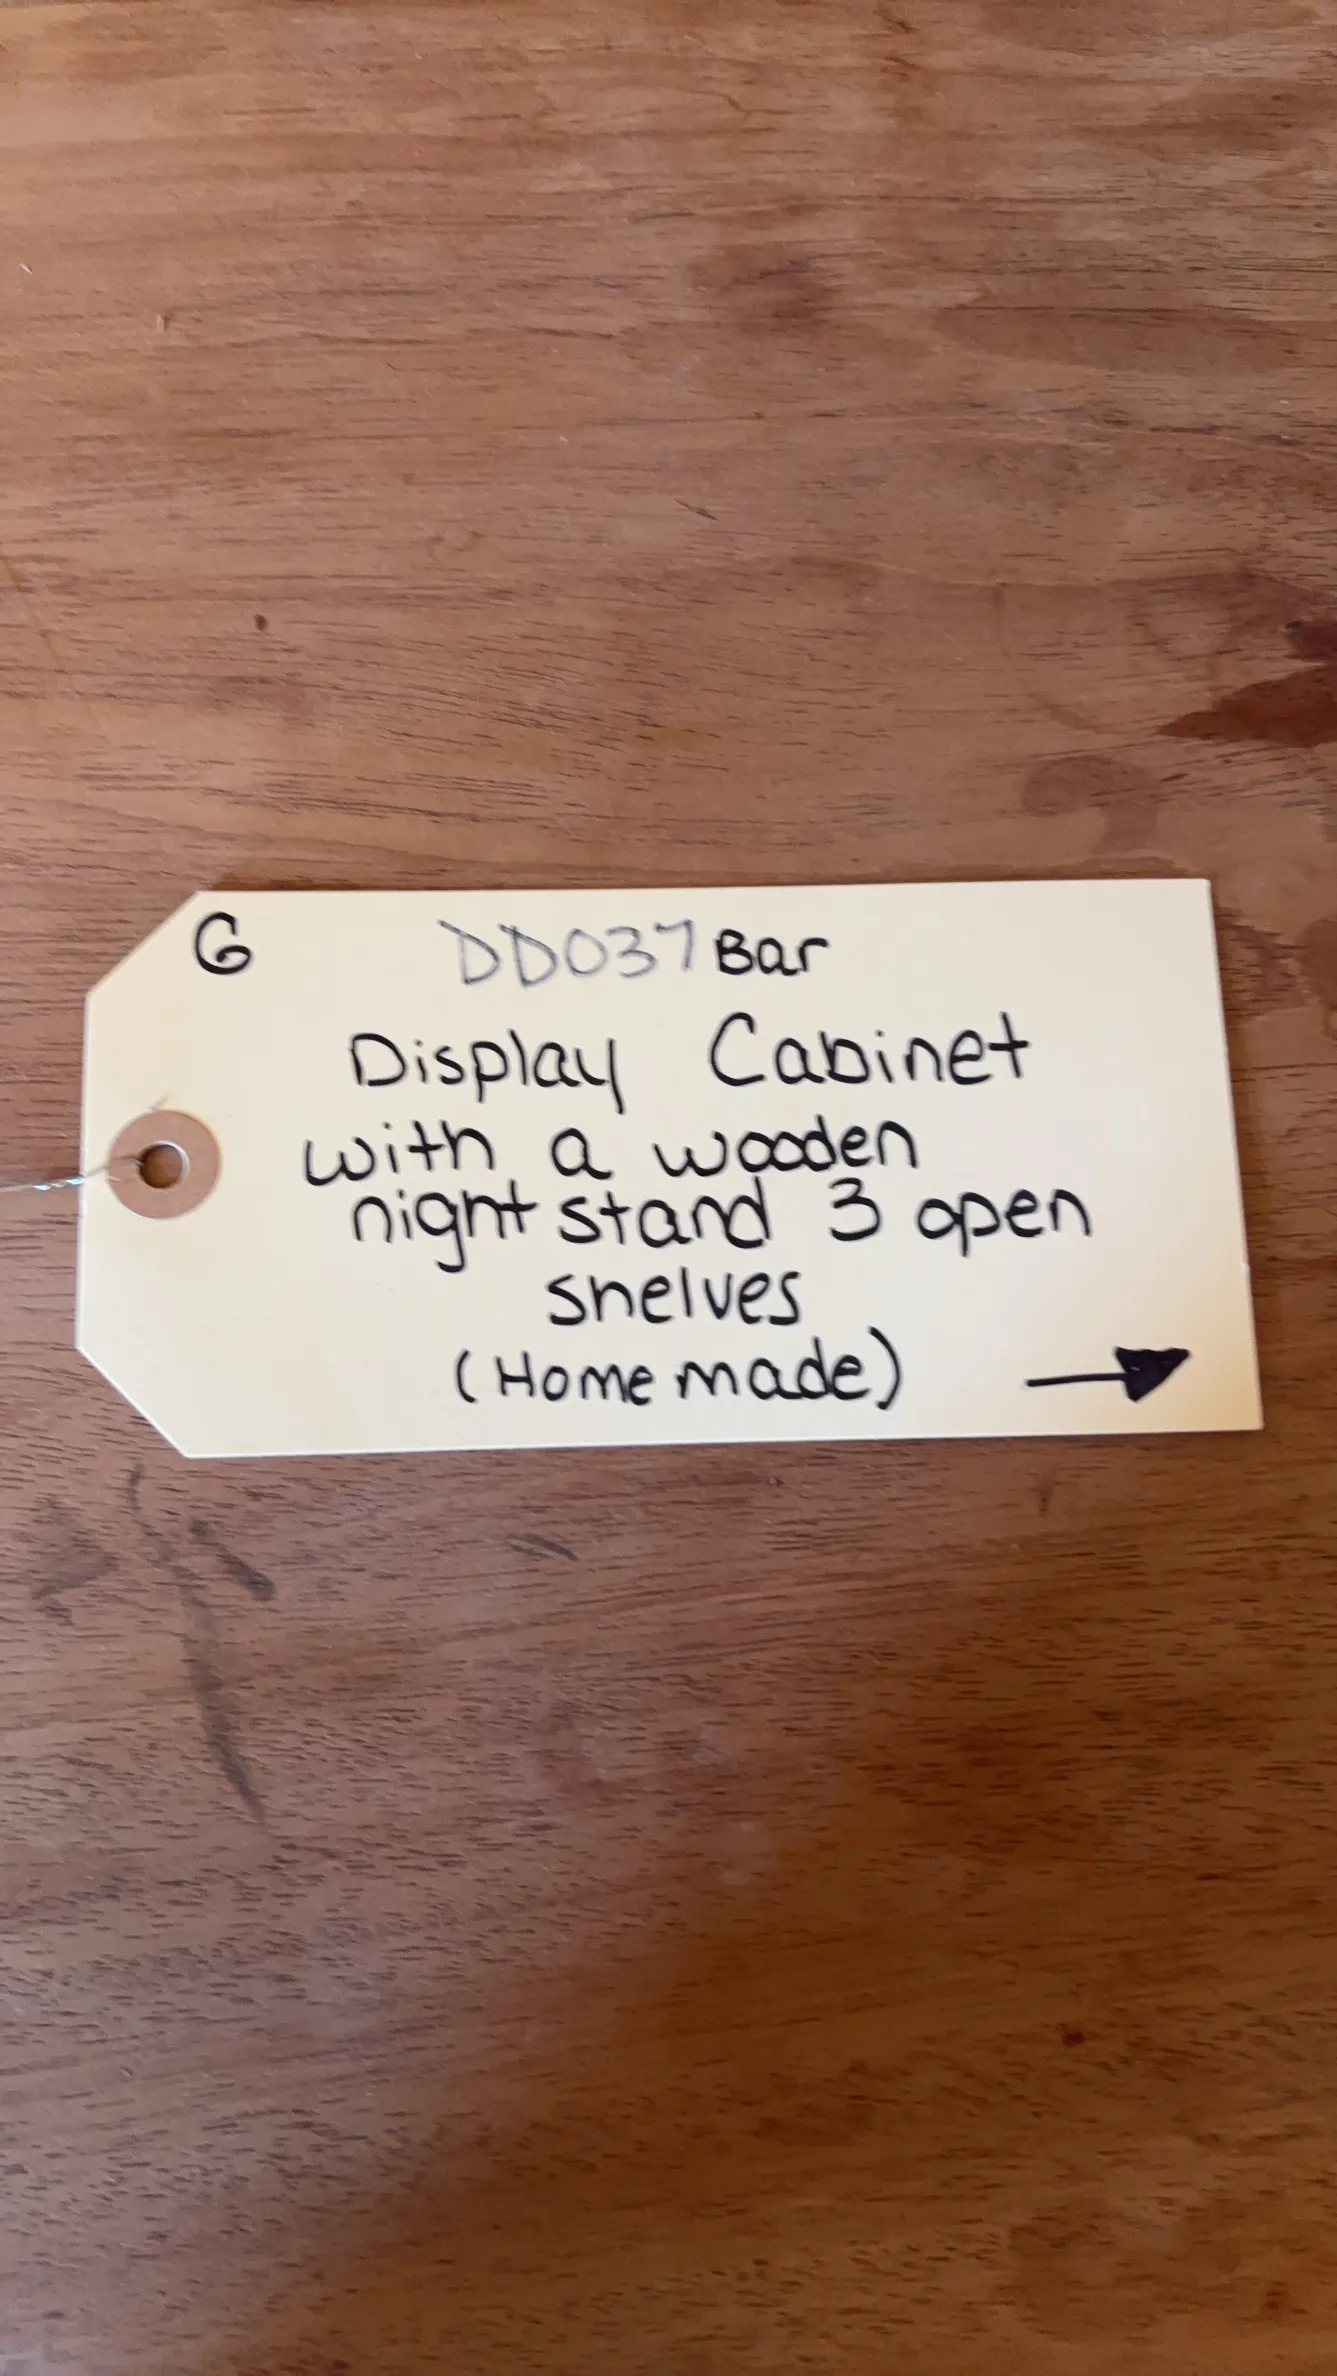 G DD037 Bar
Display Cabinet
with a wooden
night stand 3 open
shelves
(Home made) →